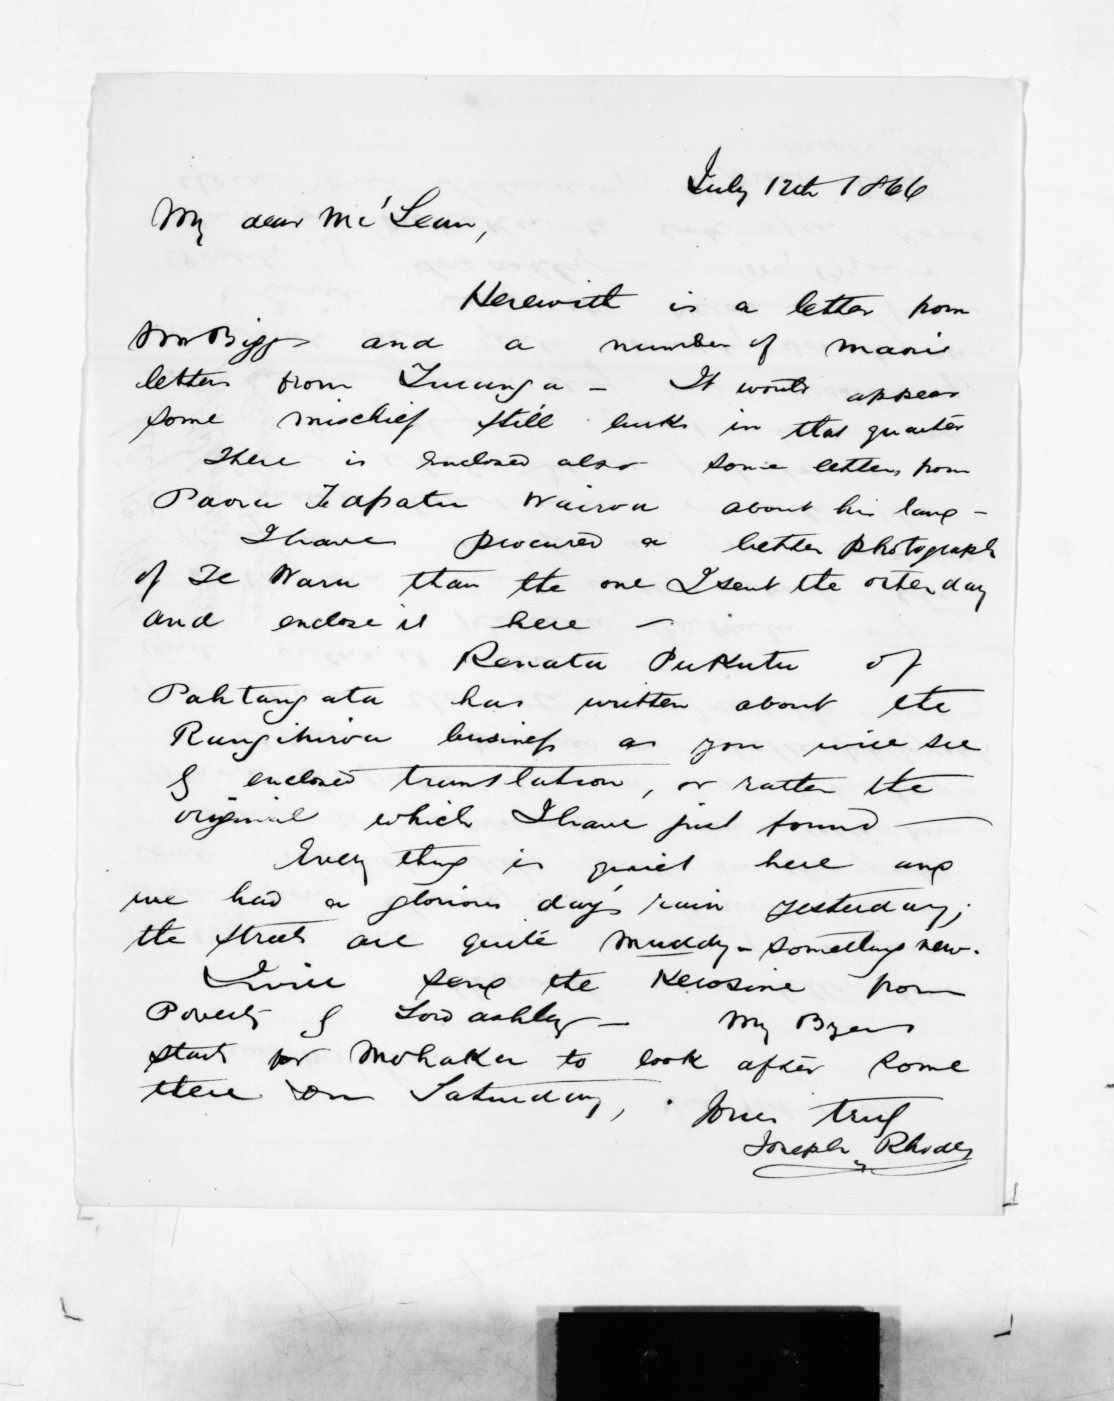 July 12th 1866
My dear McLean,
Herewith is a letter from
Mr Biggs and a number of maori
letters from Turanga - It would appear
some mischief still lurks in that quarter
There is enclosed also some letters from
Paora Te Apatu Wairoa about his land -
I have procured a better photograph
of Te Waru than the one I sent the other day
and enclose it here -
Renata Pukututu of
Pahtangata has written about the
Rangihiroa business as you will see
by enclosed translation, or rather the
original which I have just found -
Every thing is quiet here and
we had a glorious day's rain yesterday;
the streets are quite muddy - something new.
I will send the Kerosine from
Poverty by Lord Ashley - My Byers
starts for Mohaka to look after some
there on Saturday,
Yours truly
Joseph Rhodes